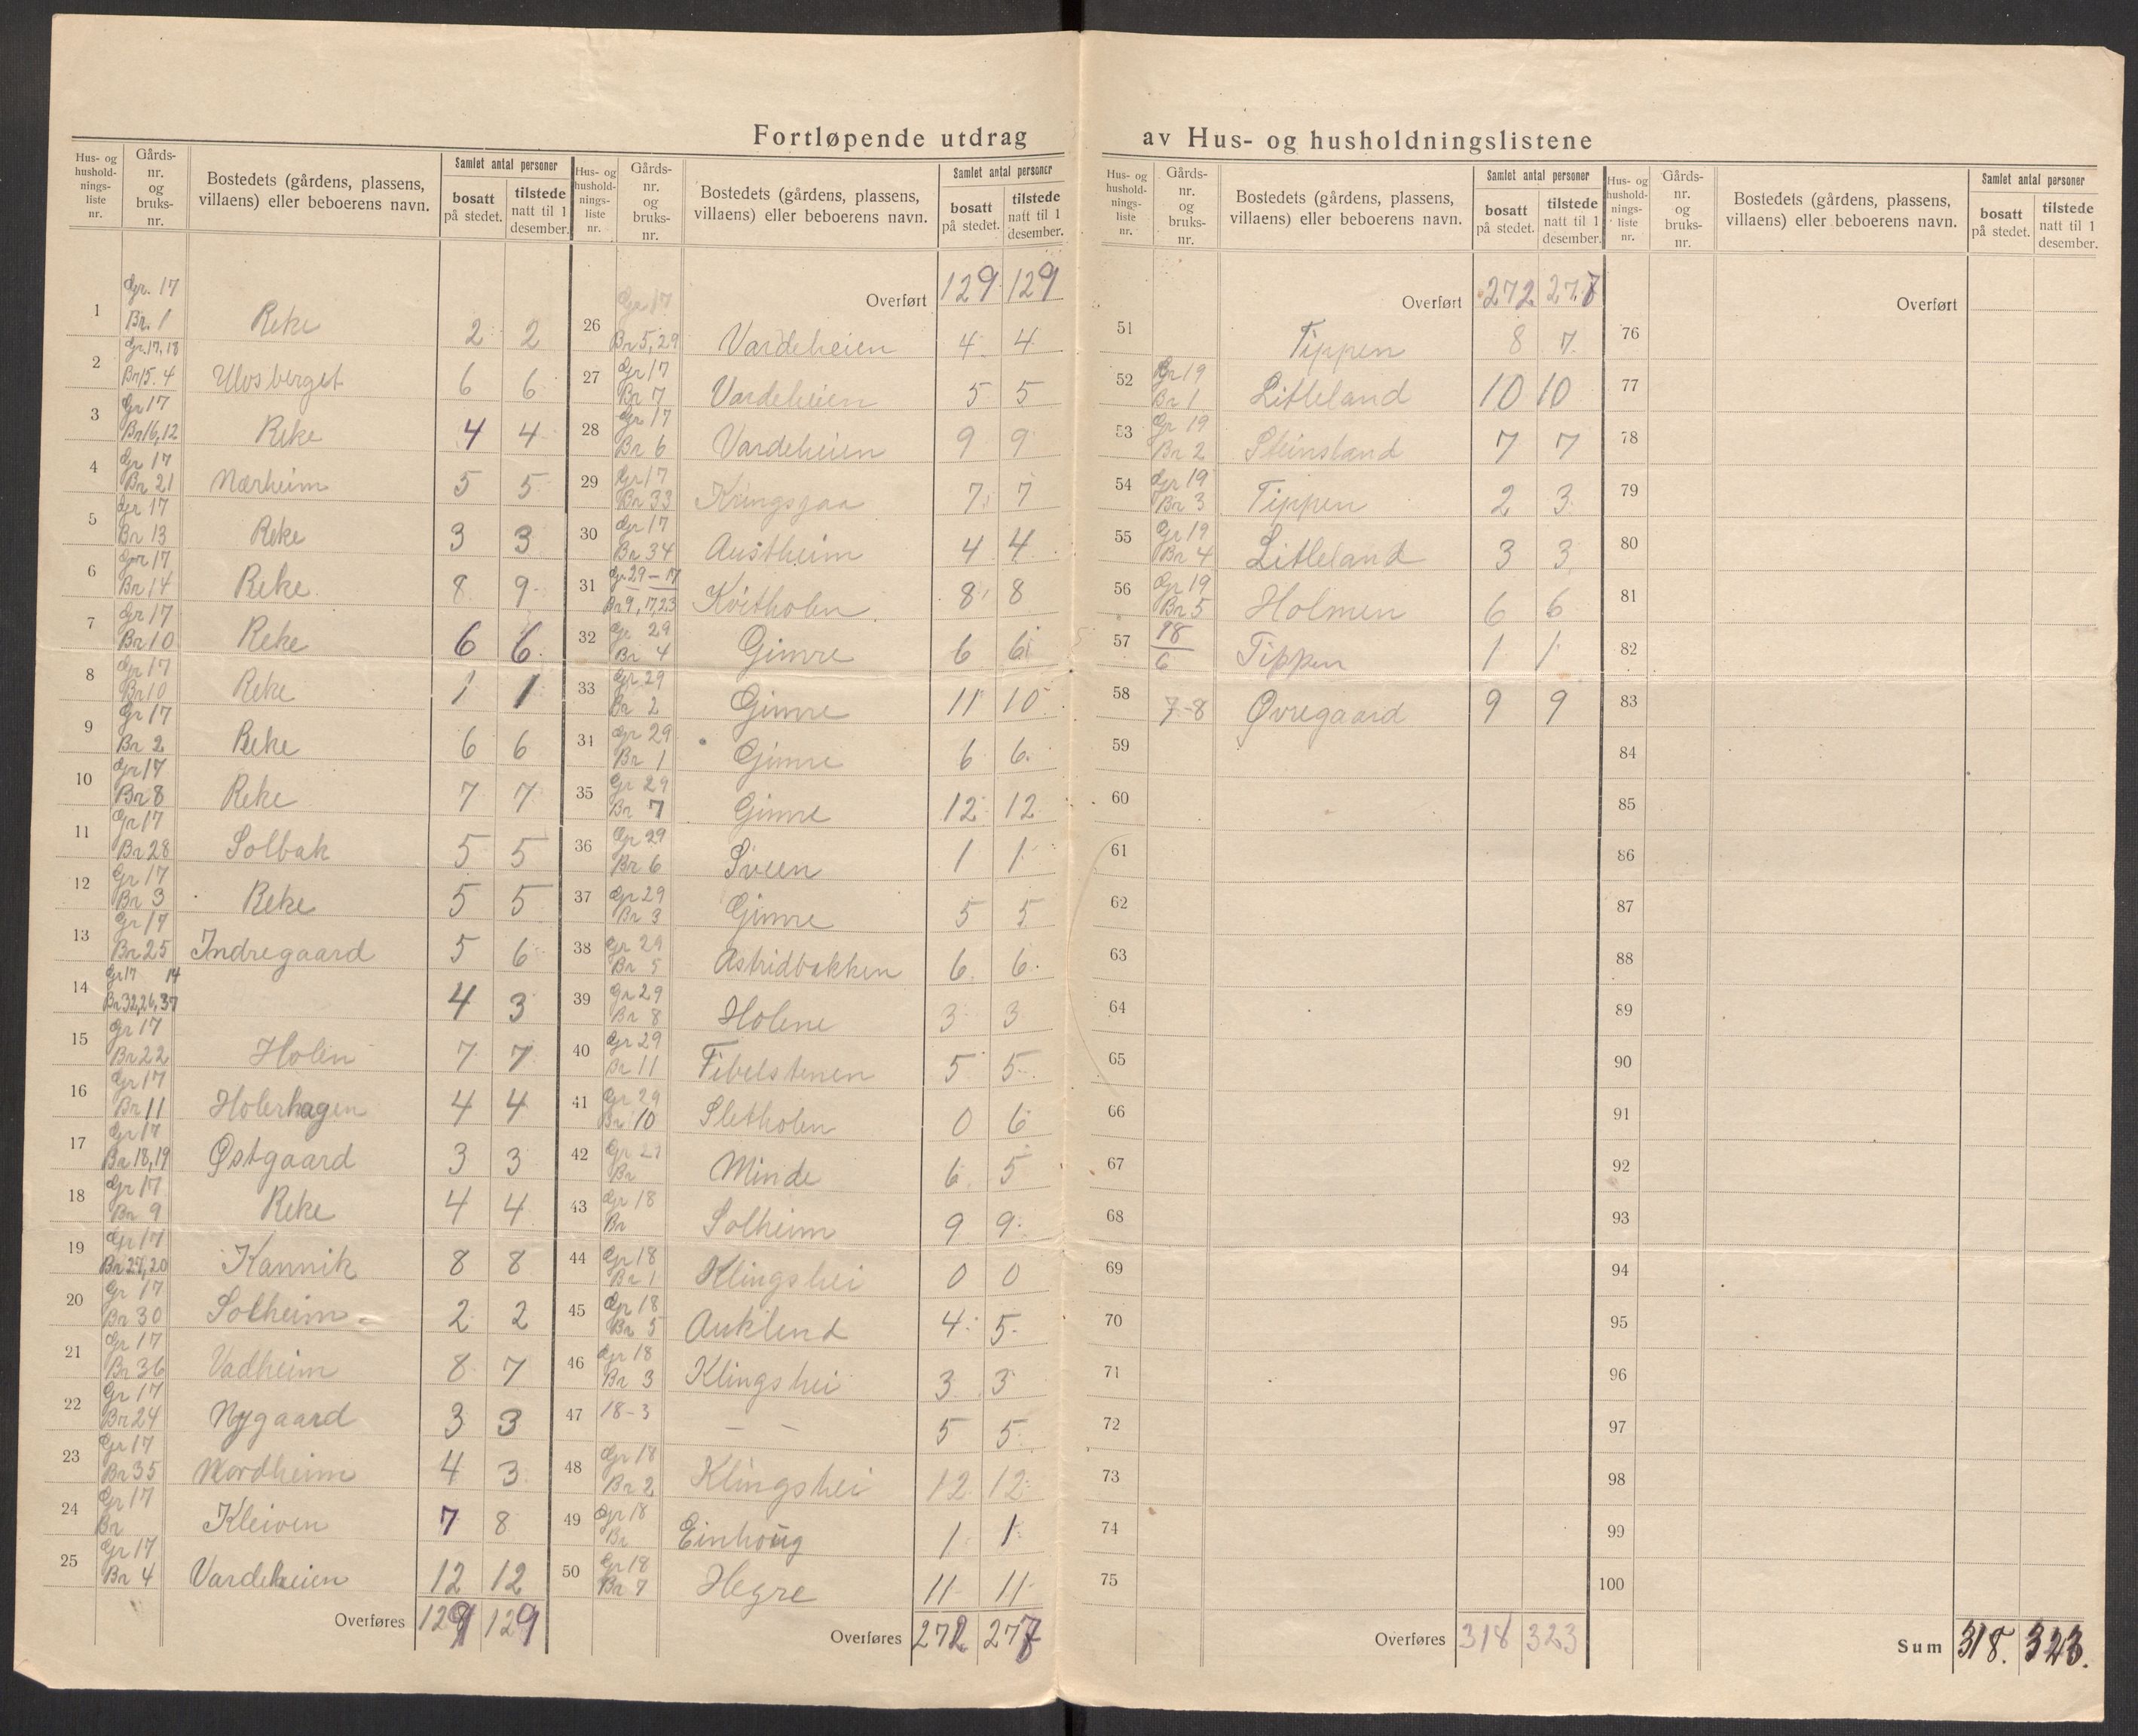 Fortløpende utdrag av Hus- og husholdningslistene
Hus- og husholdnings- liste nr. | Gårds- nr. og bruks- nr. | Bostedets (gårdens, plassens, villaens) eller beboerens navn. | Samlet antal personer | bosatt på stedet. | tilstede natt til 1 desember.
1 Gr. 17 Br. 1 Reke 2 2
2 Gr. 17, 18 Br 15. 4 Ulvsberget 6 6
3 Gr 17 Br 16, 12 Reke 4 4
4 Gr 17 Br 21 Nærheim 5 5
5 Gr 17 Br 13 Reke 3 3
6 Gr 17 Br 14 Reke 8 9
7 Gr 17 Br 10 Reke 6 6
8 Gr 17 Br 10 Reke 1 1
9 Gr 17 Br 2 Reke 6 6
10 Gr 17 Br 8 Reke 7 7
11 Gr 17 Br 28 Solbak 5 5
12 Gr 17 Br 3 Reke 5 5
13 Gr 17 Br 25 Indregaard 5 6
14 Gr 17 14 Br 32,26,37 4 3
15 Gr 17 Br 22 Holen 7 7
16 Gr 17 Br 11 Holerhagen 4 4
17 Gr 17 Br 18,19 Østgaard 3 3
18 Gr 17 Br 9 Reke 4 4
19 Gr 17 Br 27,20 Kannik 8 8
20 Gr 17 Br 30 Solheim 2 2
21 Gr 17 Br 36 Vadheim 8 7
22 Gr 17 Br 24 Nygaard 3 3
23 Gr 17 Br 35 Nordheim 4 3
24 Gr 17 Br Kleiven 7 8
25 Gr 17 Br 4 Vardeheien 12 12
Overføres 129 129
Hus- og hushold- nings- liste nr. | Gårds- nr. og bruks- nr. | Bostedets (gårdens, plassens, villaens) eller beboerens navn. | Samlet antal personer | bosatt på stedet. | tilstede natt til 1 desember.
Overført 129 129
26 Gr 17 Br 5, 29 Vardeheien 4 4
27 Gr 17 Br 7 Vardeheien 5 5
28 Gr 17 Br 6 Vardeheien 9 9
29 Gr 17 Br 33 Kringsjaa 7 7
30 Gr 17 Br 34 Austheim 4 4
31 Gr 29 – 17 Br 9, 17,23 Kvitholen 8 8
32 Gr 29 Br 4 Gimre 6 6
33 Gr 29 Br 2 Gimre 11 10
31 Gr 29 Br 1 Gimre 6 6
35 Gr 29 Br 7 Gimre 12 12
36 Gr 29 Br 6 Sveen 1 1
37 Gr 29 Br 3 Gimre 5 5
38 Gr 29 Br 5 Astridbakken 6 6
39 Gr 29 Br 8 Holene 3 3
40 Gr 29 Br 11 Fibelstenen 5 5
41 Gr 29 Br 10 Sletholen 0 6
42 Gr 29 Br Minde 6 5
43 Gr 18 Br Solheim 9 9
44 Gr 18 Br 1 Klingshei 0 0
45 Gr 18 Br 5 Auklend 4 5
46 Gr 18 Br 3 Klingshei 3 3
47 18-3 — — 5 5
48 Gr 18 Br 2 Klingshei 12 12
49 Gr 18 Br Einhoug 1 1
50 Gr 18 Br 7 Hegre 11 11
Overføres 272 277
Hus- og hushold- nings- liste nr. | Gårds- nr. og bruks- nr. | Bostedets (gårdens, plassens, villaens) eller beboerens navn. | Samlet antal personer | bosatt på stedet. | tilstede natt til 1 desember.
Overført 272 277
51 Tippen 8 7
52 Gr 19 Br 1 Litleland 10 10
53 Gr 19 Br 2 Steinsland 7 7
54 Gr 19 Br 3 Tippen 2 3
55 Gr 19 Br 4 Litleland 3 3
56 Gr 19 Br 5 Holmen 6 6
57 18 6 Tippen 1 1
58 7-8 Øvregaard 9 9
59
60
61
62
63
64
65
66
67
68
69
70
71
72
73
74
75
Overføres 318 323
Hus- og husholdnings- liste nr. | Gårds- nr. og bruks- nr. | Bostedets (gårdens, plassens, villaens) eller beboerens navn. | Samlet antal personer | bosatt på stedet. | tilstede natt til 1 desember.
Overført
76
77
78
79
80
81
82
83
84
85
86
87
88
89
90
91
92
93
94
95
96
97
98
99
100
Sum 318. 323.